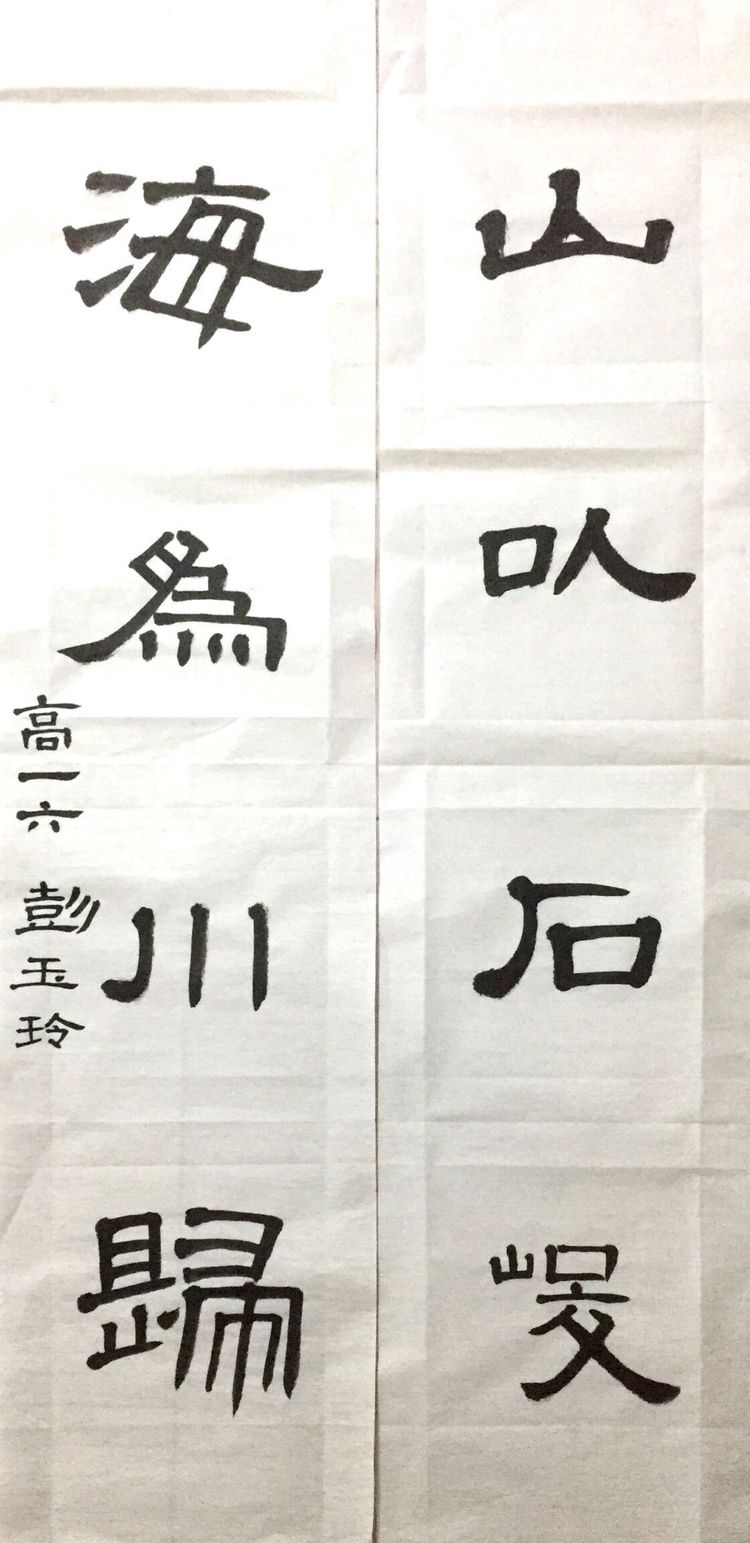 山以石峻
海為川歸
高一六 彭玉玲